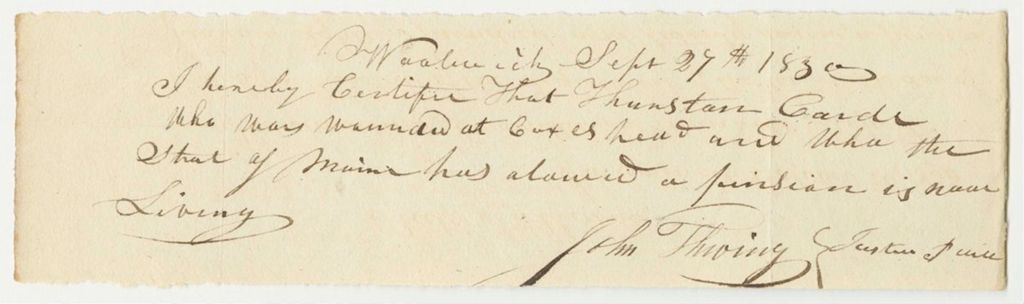 Woolwich Sept 27th 1830
I hereby Certifie That Thurstan Carde
Who was wounded at Coxes head and Who the
State of Maine has alowed a pinsion is now
Living
John Thwing { Justice Peace